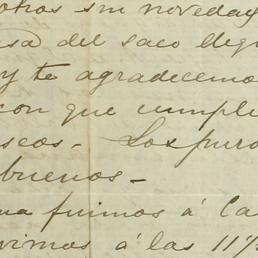 otros sin novedad
esa del saco llegó
y te agradecemos
con que cumpli
seos - Los puro
buenos -
ua fuimos á Ca
vimos á las 11½